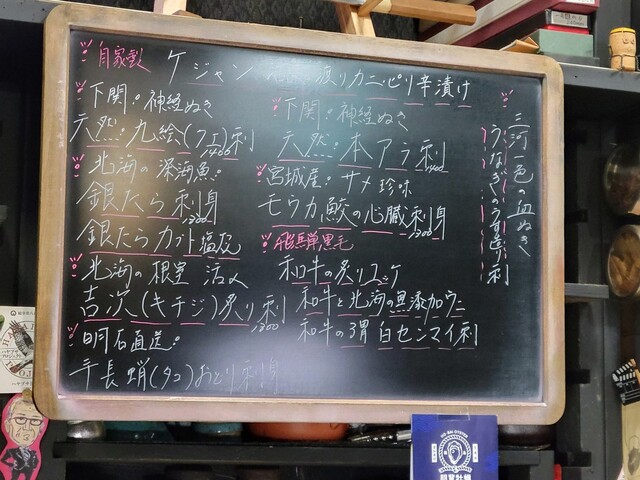 自家製
ケジャン 渡りカニピリ辛漬け
下関:神経ぬき
天然:九絵(クエ)刺
1400
北海の深海魚:
銀たら刺身
1200
銀たらカブト塩灰
北海の根室 活〆
吉次(キチジ)炙り刺
1300
明石直送:
手長蛸(タコ)おどり刺身
下関:神経ぬき
天然:本アラ刺
1400
宮城産:サメ珍味
モウカ鮫の心臓刺身
1200
飛騨黒毛
和牛の炙りユッケ
和牛と北海の無添加ウニ
和牛の胃 白センマイ刺
三河一色の血ぬき
うなぎのうす造り刺